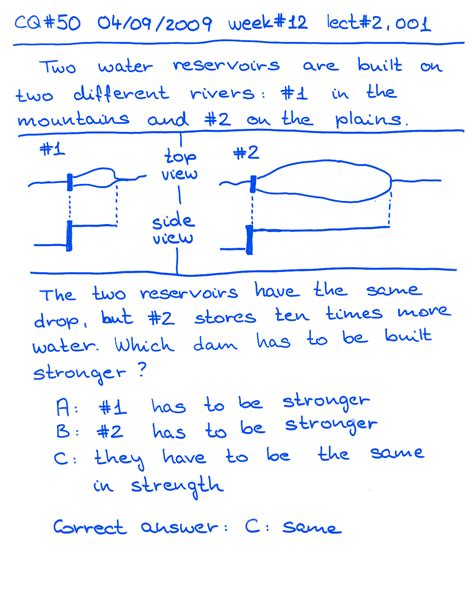 CQ#50 04/09/2009 week#12 lect#2,001
Two water reservoirs are built on
two different rivers: #1 in the
mountains and #2 on the plains.
#1 top view #2
side view
The two reservoirs have the same
drop, but #2 stores ten times more
water. Which dam has to be built
stronger?
A: #1 has to be stronger
B: #2 has to be stronger
C: they have to be the same
in strength
Correct answer: C: same